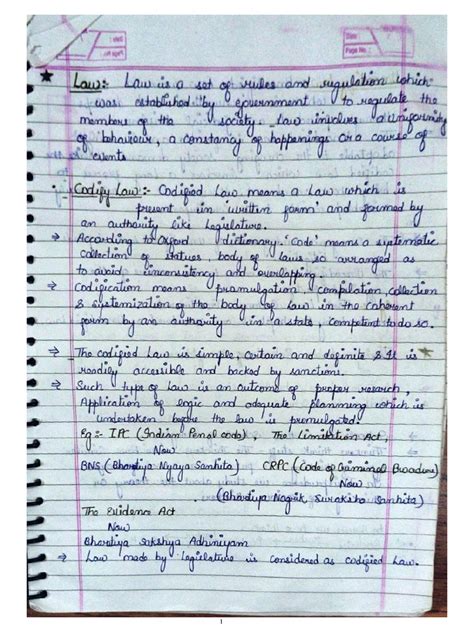 Date
Page No.
★ Law:- Law is a set of rules and regulation which
was established by government to regulate the
members of the society. Law involves a uniformity
of behaviour, a constancy of happenings or a course of
events
Codify Law:- Codified Law means a Law which is
present in 'written form' and formed by
an authority like Legislature.
→ According to Oxford dictionary. 'code' means a systematic
collection of statues body of laws so arranged as
to avoid inconsistency and overlapping.
→ Codification means promulgation, compilation, collection
& systemization of the body of law in the coherent
form by an authority in a state, competent to do so.
→ The codified Law is simple, certain and definite & It is
readily accessible and backed by sanctions.
→ Such type of Law is an outcome of proper research,
Application of logic and adequate planning which is
undertaken before the law is promulgated.
Eg:- IPC (Indian Penal code), The Limitation Act,
Now
BNS (Bhartiya Nyaya Sanhita) CRPC (Code of Criminal Procedure)
Now
(Bhartiya Nagrik Suraksha Sanhita)
The Evidence Act
Now
Bhartiya Sakshya Adhiniyam
→ Law made by legislature is considered as codified Law.
1